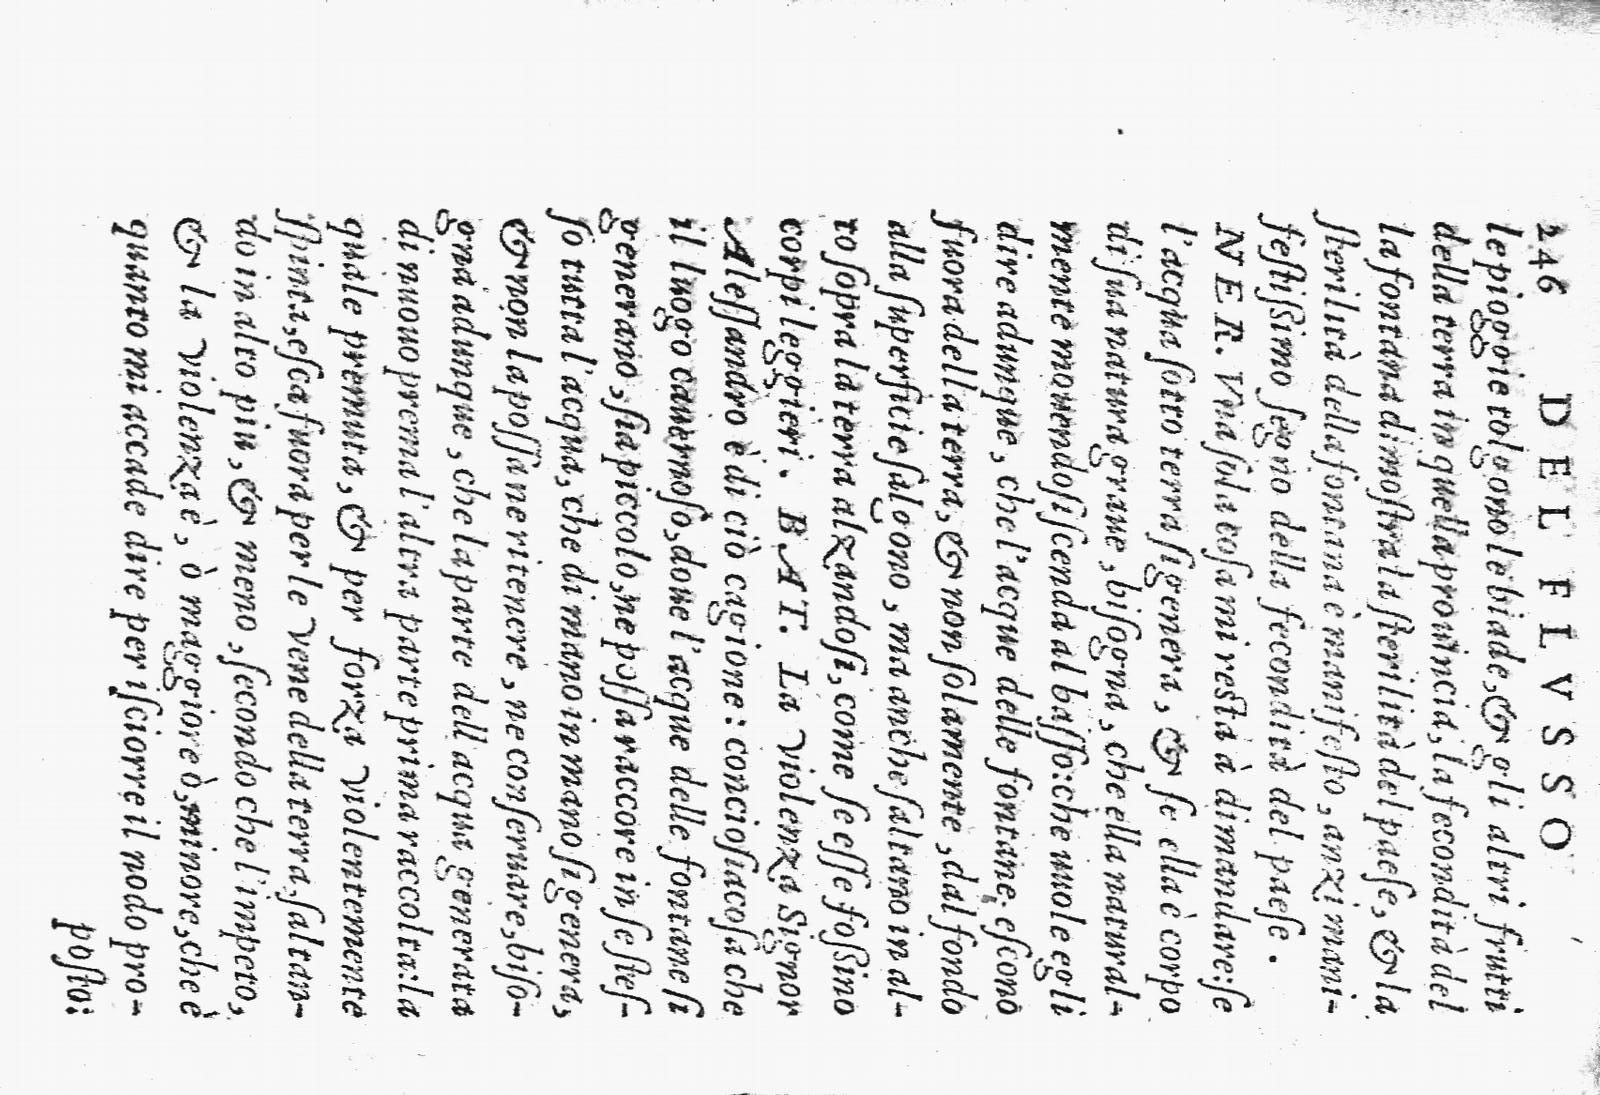 246 DEL FLVSSO
le pioggie tolgono le biade, & gli altri frutti
della terra in quella prouincia, la fecondità del
la fontana dimoſtra la ſterilità del paeſe, & la
ſterilità della fontana è manifeſto, anzi mani-
feſtiſsimo ſegno della fecondità del paeſe.
NER. Vna ſola coſa mi reſta à dimandare: ſe
l'acqua ſotto terra ſi genera, & ſe ella è corpo
di ſua natura graue, biſogna, che ella natural-
mente mouendoſi ſcenda al baſſo: che uuole egli
dire adunque, che l'acque delle fontane eſcono
fuora della terra, & non ſolamente, dal fondo
alla ſuperficie ſalgono, ma anche ſaltano in al-
to ſopra la terra alzandoſi, come ſe eſſe foſsino
corpi leggieri. BAT. La violenza Signor
Aleſſandro è di ciò cagione: concioſiacoſa che
il luogo cauernoſo, doue l'acque delle fontane ſi
generano, ſia piccolo, ne poſſa raccore in ſe ſteſ-
ſo tutta l'acqua, che di mano in mano ſi genera,
& non la poſſa ne ritenere, ne conſeruare, biſo-
gna adunque, che la parte dell acqua generata
di nuouo prema l'altra parte prima raccolta: la
quale premuta, & per forza violentemente
ſpinta, eſca fuora per le vene della terra, ſaltan-
do in alto piu, & meno, ſecondo che l'impeto,
& la violenza è, ò maggiore ò, minore, che è
quanto mi accade dire per iſciorre il modo pro-
poſto: